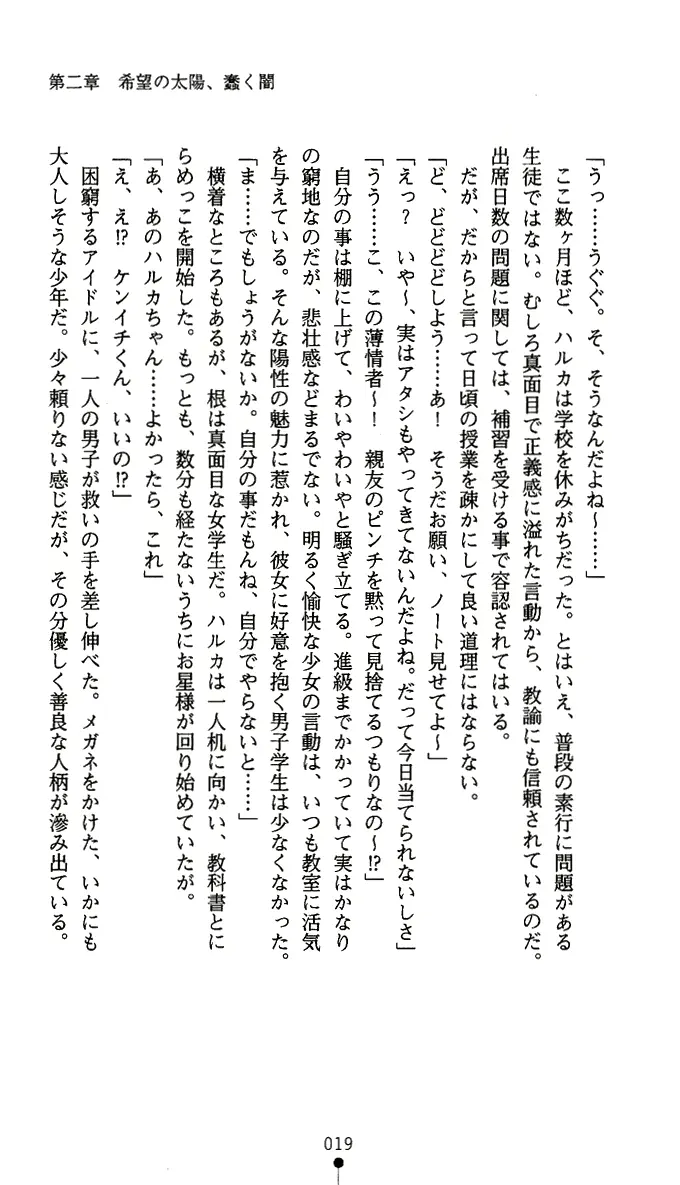 第二章　希望の太陽、蠢く闇
「うっ……うぐぐ。そ、そうなんだよね～……」
　ここ数ヶ月ほど、ハルカは学校を休みがちだった。とはいえ、普段の素行に問題がある
生徒ではない。むしろ真面目で正義感に溢れた言動から、教諭にも信頼されているのだ。
出席日数の問題に関しては、補習を受ける事で容認されてはいる。
　だが、だからと言って日頃の授業を疎かにして良い道理にはならない。
「ど、どどどどしよう……あ！　そうだお願い、ノート見せてよ～」
「えっ？　いや～、実はアタシもやってきてないんだよね。だって今日当てられないしさ」
「うう……こ、この薄情者～！　親友のピンチを黙って見捨てるつもりなの～!?」
　自分の事は棚に上げて、わいやわいやと騒ぎ立てる。進級までかかっていて実はかなり
の窮地なのだが、悲壮感などまるでない。明るく愉快な少女の言動は、いつも教室に活気
を与えている。そんな陽性の魅力に惹かれ、彼女に好意を抱く男子学生は少なくなかった。
「ま……でもしょうがないか。自分の事だもんね、自分でやらないと……」
　横着なところもあるが、根は真面目な女学生だ。ハルカは一人机に向かい、教科書とに
らめっこを開始した。もっとも、数分も経たないうちにお星様が回り始めていたが。
「あ、あのハルカちゃん……よかったら、これ」
「え、え!?　ケンイチくん、いいの!?」
　困窮するアイドルに、一人の男子が救いの手を差し伸べた。メガネをかけた、いかにも
大人しそうな少年だ。少々頼りない感じだが、その分優しく善良な人柄が滲み出ている。
019